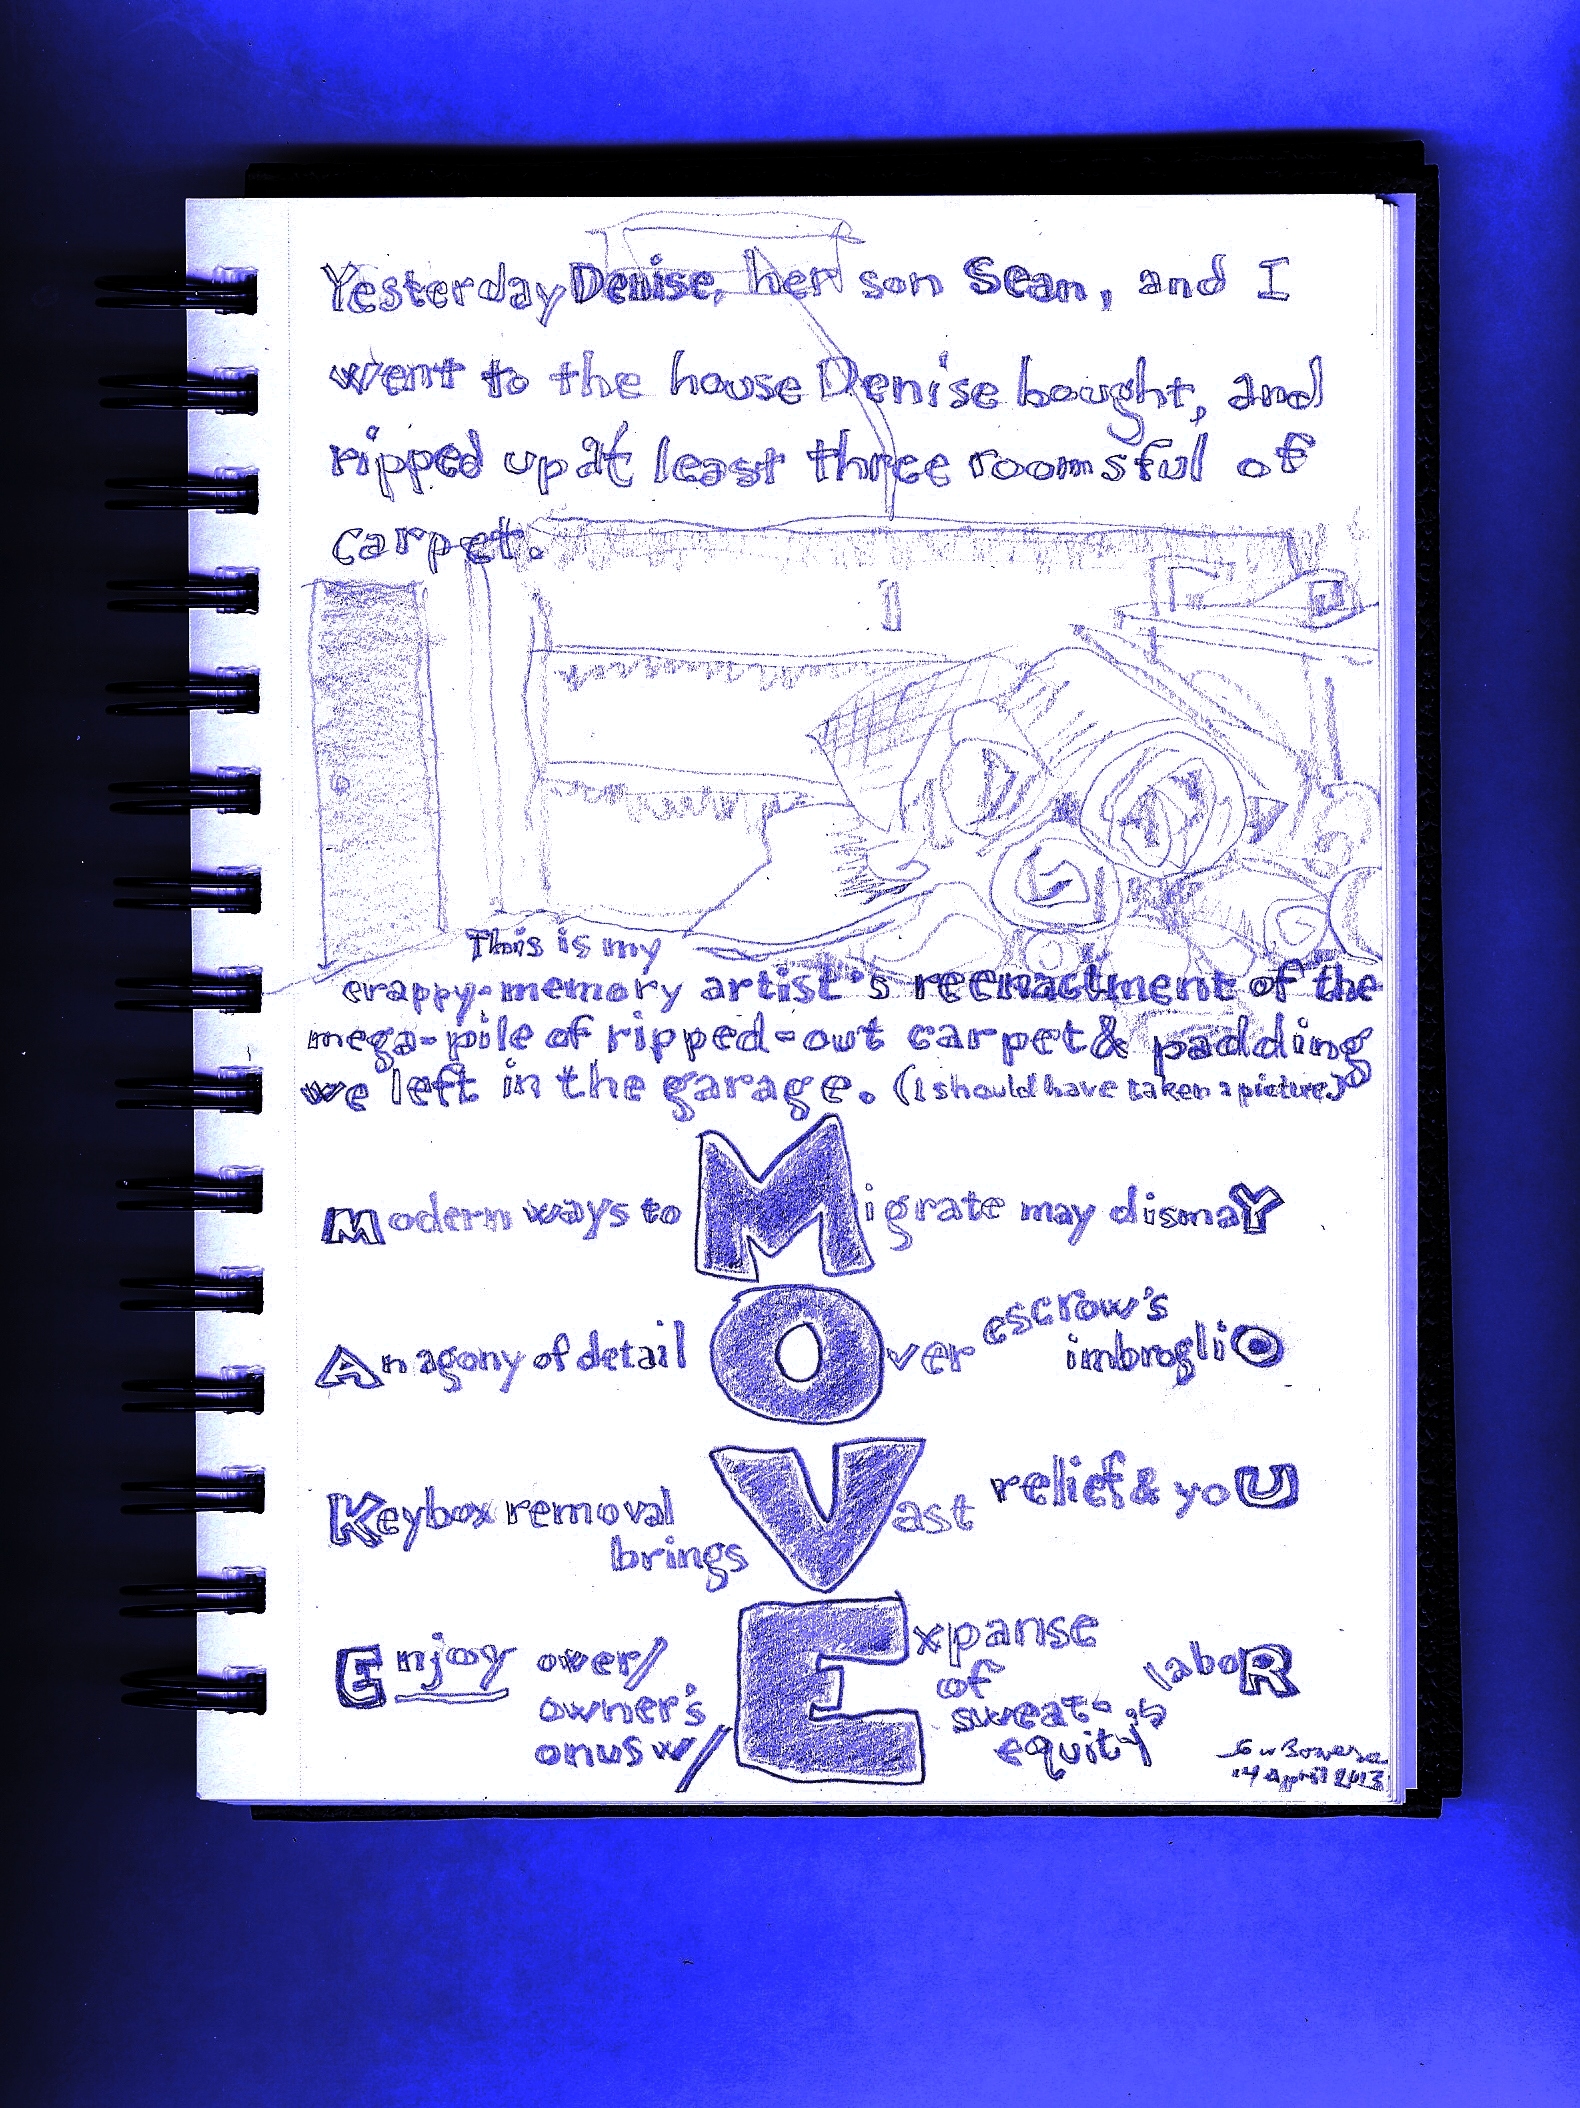 Yesterday Denise, her son Sean, and I
went to the house Denise bought, and
ripped up at least three roomsful of
carpet.
This is my
crappy-memory artist's reenactment of the
mega-pile of ripped-out carpet & padding
we left in the garage. (I should have taken a picture.)
Modern ways to Migrate may dismaY
An agony of detail Over escrow's
imbrogliO
Keybox removal
brings Vast relief & yoU
Enjoy over/
owner's
onus w/ Expanse
of
sweat-
equity's
laboR
14 April 2013